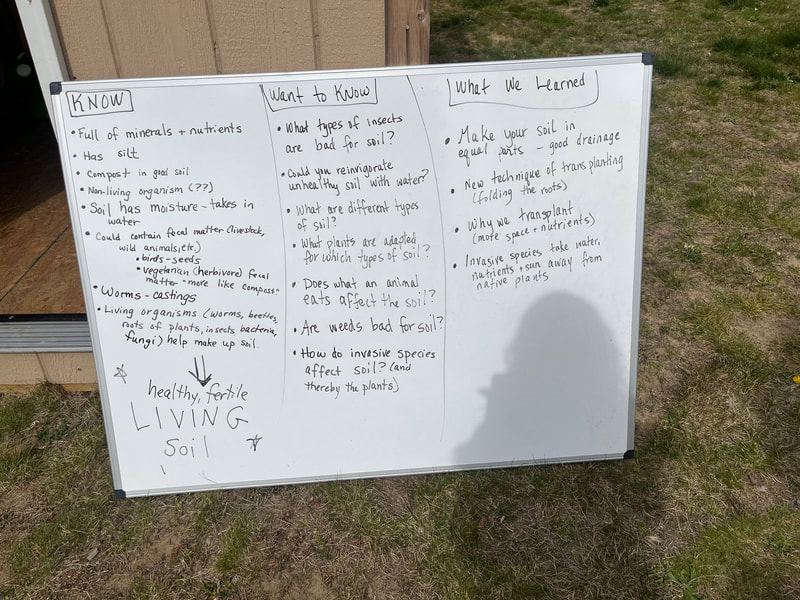 KNOW
• Full of minerals + nutrients
• Has silt
• Compost in good soil
• Non-living organism (??)
• Soil has moisture - takes in
water
• Could contain fecal matter (livestock,
wild animals, etc.)
• birds - seeds
• vegetarian (herbivore) fecal
matter "more like compost"
• Worms - castings
• Living organisms (worms, beetles,
roots of plants, insects, bacteria,
fungi) help make up soil.
healthy, fertile
LIVING
Soil
Want to Know
• What types of insects
are bad for soil?
• Could you reinvigorate
unhealthy soil with water?
• What are different types
of soil?
• What plants are adapted
for which types of soil?
• Does what an animal
eats affect the soil?
• Are weeds bad for soil?
• How do invasive species
affect soil? (and
thereby the plants)
What We Learned
• Make your soil in
equal parts - good drainage
• New technique of transplanting
(folding the roots)
• Why we transplant
(more space + nutrients)
• Invasive species take water,
nutrients + sun away from
native plants